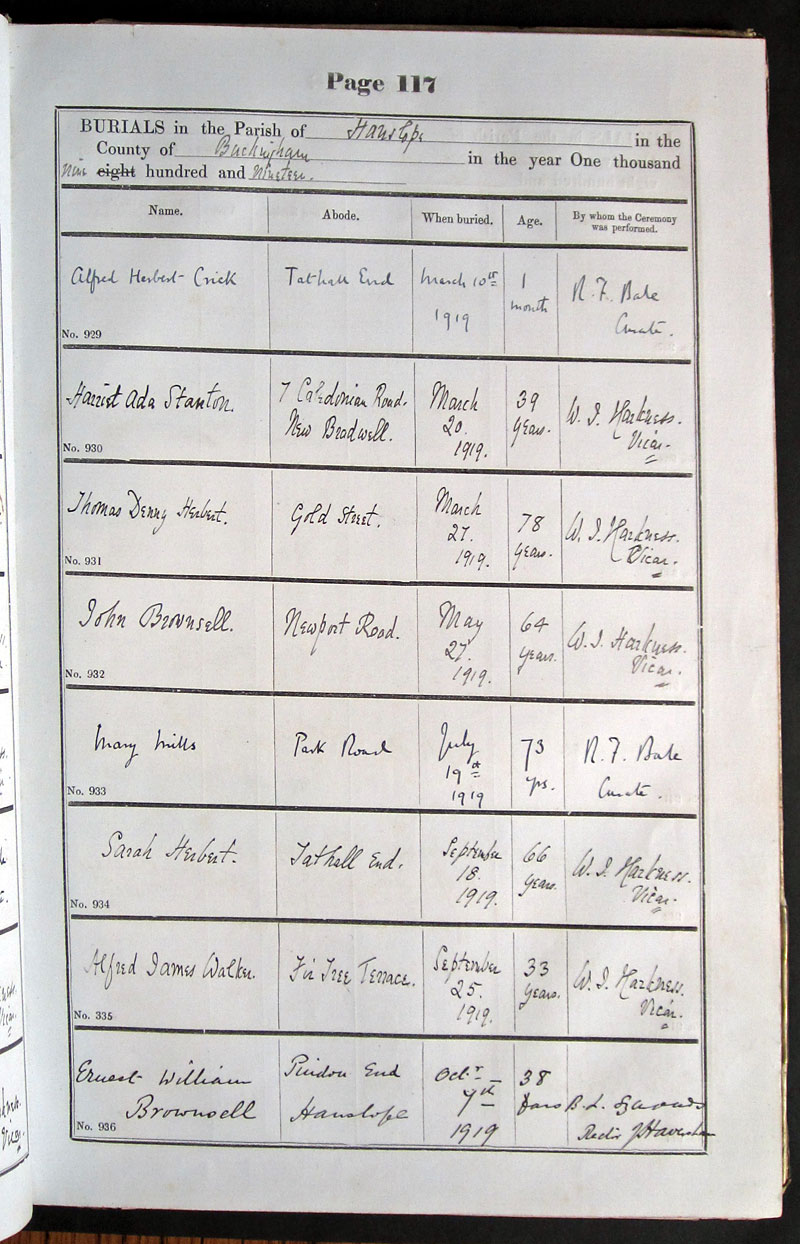 Page 117
BURIALS in the Parish of Hanslope in the
County of Buckingham in the year One thousand
nine eight hundred and Nineteen.
Name. Abode. When buried. Age. By whom the Ceremony was performed.
Alfred Herbert Crick Tathall End March 10th 1 R. F. Bale
1919 month Curate.
No. 929
Harriet Ada Stanton. 7 Caledonian Road. March 39 W. J. Harkness.
New Bradwell. 20. years. Vicar.
No. 930 1919.
Thomas Denny Herbert. Gold Street. March 78 W. J. Harkness.
27. years. Vicar.
No. 931 1919.
John Brownsell. Newport Road. May 64 W. J. Harkness.
27. years. Vicar.
No. 932 1919.
Mary Mills Park Road July 73 R. F. Bale
19th yrs. Curate.
No. 933 1919
Sarah Herbert. Tathall End. September 66 W. J. Harkness.
18. years. Vicar.
No. 934 1919.
Alfred James Walker. Fir Tree Terrace. September 33 W. J. Harkness.
25. years. Vicar.
No. 335 1919.
Ernest William Pindon End Octr 38
Brownsell Hanslope 7th B. L.
No. 936 1919 Rector of Haversham